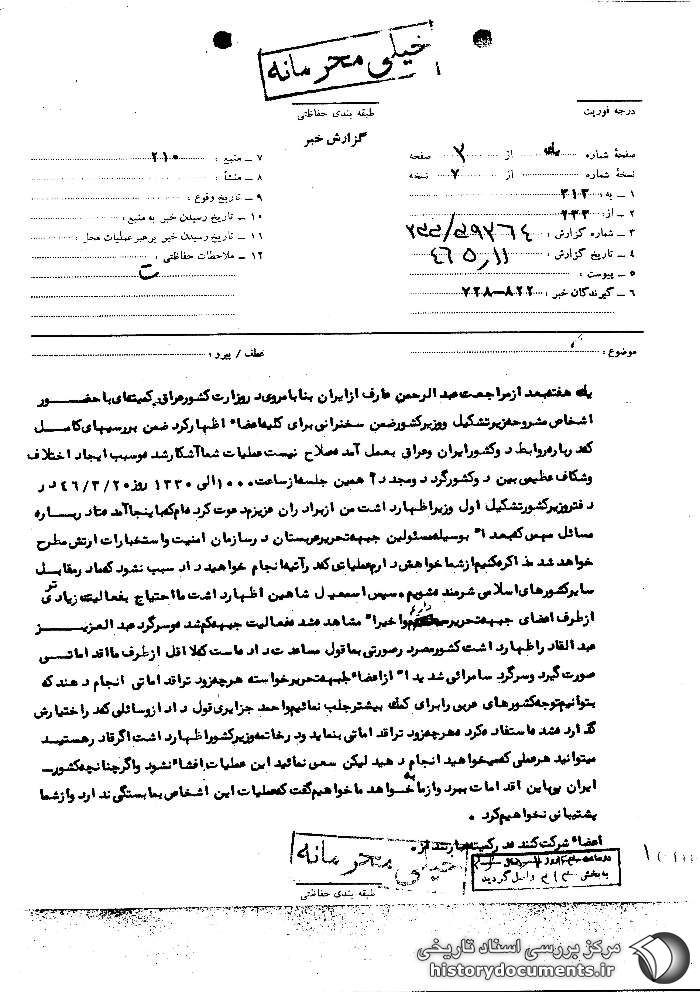 خیلی محرمانه
درجه فوریت
طبقه بندی حفاظتی
گزارش خبر
صفحهٔ شماره یک از ۳ صفحه
نسخهٔ شماره از ۷ نسخه
۱ – به : ۳۱۲
۲ – از : ۲۳۲
۳ – شماره گزارش :
۴ – تاریخ گزارش :
۵ – پیوست :
۶ – گیرندگان خبر : ۸۲۲–۷۲۸
۷ – منبع : ۲۱۰
۸ – منشأ :
۹ – تاریخ وقوع :
۱۰ – تاریخ رسیدن خبر به منبع :
۱۱ – تاریخ رسیدن خبر برهبر عملیات محل :
۱۲ – ملاحظات حفاظتی :
موضوع :
عطف / پیرو :
یک هفته بعد از مراجعت عبد الرحمن عارف از ایران بنا بامروی در وزارت کشور عراق کمیته‌ای با حضور
اشخاص مشروحه زیر تشکیل و وزیر کشور ضمن سخنرانی برای کلیه اعضاء اظهار کرد ضمن بررسیهای کامل
که درباره روابط دو کشور ایران و عراق بعمل آمده صلاح نیست عملیات شما آشکار شده و سبب ایجاد اختلاف
و شکاف عظیمی بین دو کشور گردد و مجددآ همین جلسه از ساعت ۱۰۰۰ الی ۱۳۳۰ روز ۴۶/۳/۲۰ در
دفتر وزیر کشور تشکیل اول وزیر اظهار داشت من از برادران عزیزم دعوت کرده‌ام که باینجا آمده تا درباره
مسائل مهمی که بعدا" بوسیله مسئولین جبهه تحریر عربستان در سازمان امنیت و استخبارات ارتش مطرح
خواهد شد مذاکره کنیم از شما خواهش دارم عملیاتی که در آتیه انجام خواهید داد سبب نشود که ما در مقابل
سایر کشورهای اسلامی شرمنده شویم . سپس اسمعیل شاهین اظهار داشت ما احتیاج بفعالیت زیادتری
از طرف اعضای جبهه تحریر داریم و اخیرا" مشاهده شده فعالیت جبهه کم شده و سرگرد عبد العزیز
عبد القادر اظهار داشت کشور مصر در صورتی بما قول مساعدت داده است که لااقل از طرف ما اقداماتی
صورت گیرد و سرگرد سامرائی شدیدا" از اعضاء جبهه تحریر خواسته هرچه زودتر اقداماتی انجام دهند که
بتوانیم توجه کشورهای عربی را برای کمک بیشتر جلب نمائیم و احمد جزایری قول داد از وسائلی که در اختیارش
گذارده شده استفاده کرده هرچه زودتر اقداماتی بنماید و در خاتمه وزیر کشور اظهار داشت اگر قادر هستید
میتوانید هر عملی که میخواهید انجام دهید لیکن سعی نمائید این عملیات افشاء نشود و اگر چنانچه کشور
ایران پی باین اقدامات ببرد و از ما بخواهد ما خواهیم گفت که عملیات این اشخاص بما بستگی ندارد و از شما
پشتیبانی نخواهیم کرد .
اعضاء شرکت کننده در کمیته عبارتند از .
خیلی محرمانه
طبقه بندی حفاظتی
مرکز بررسی اسناد تاریخی
historydocuments.ir